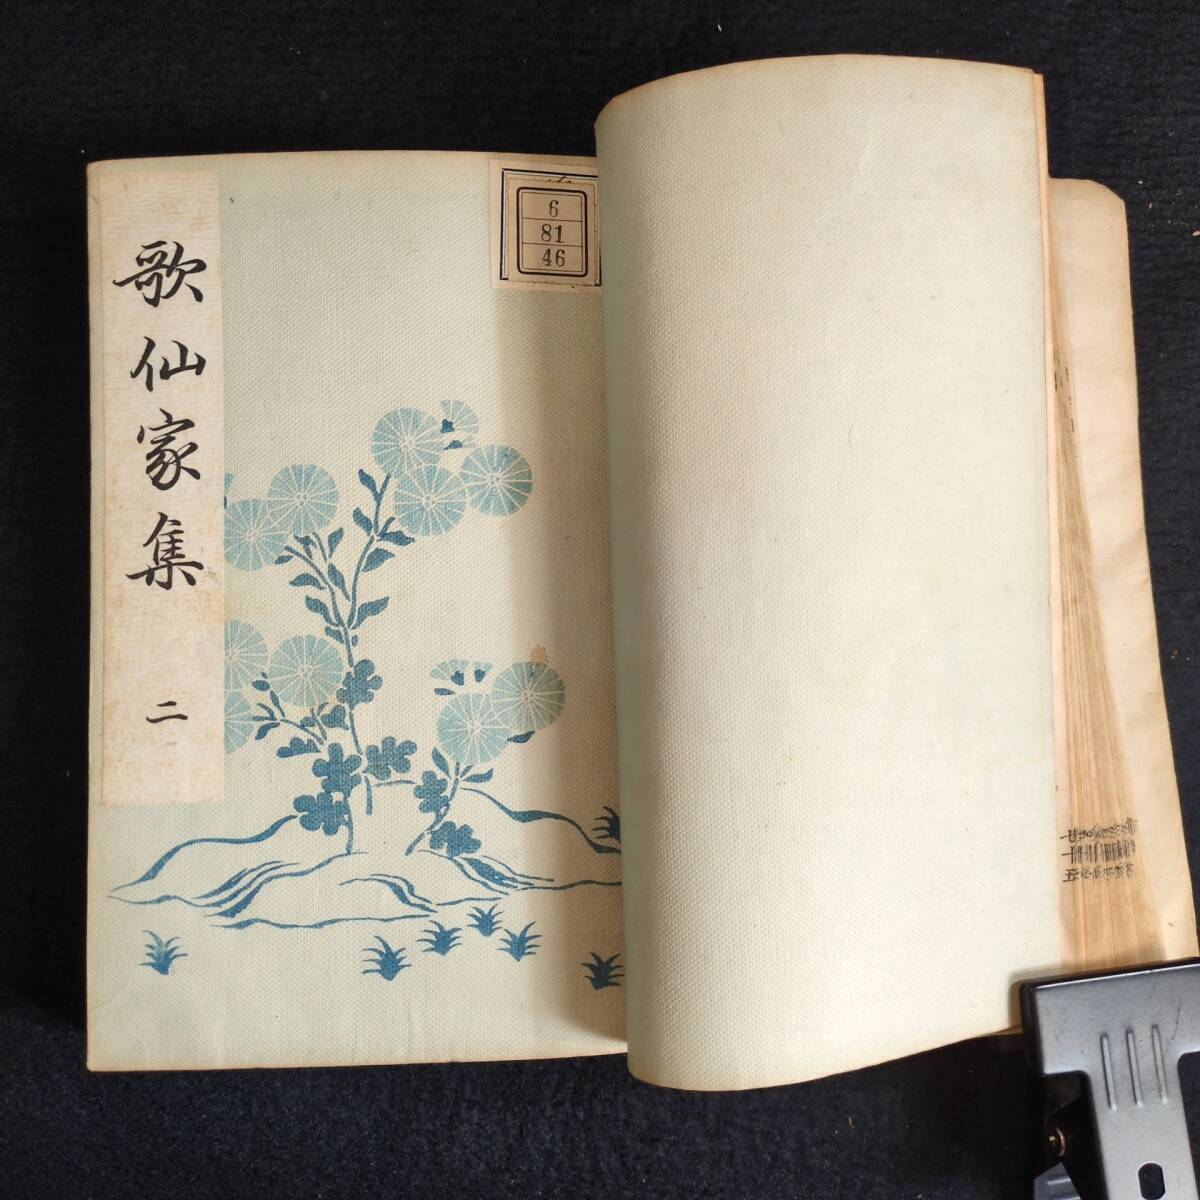 歌仙家集
二
6
81
46